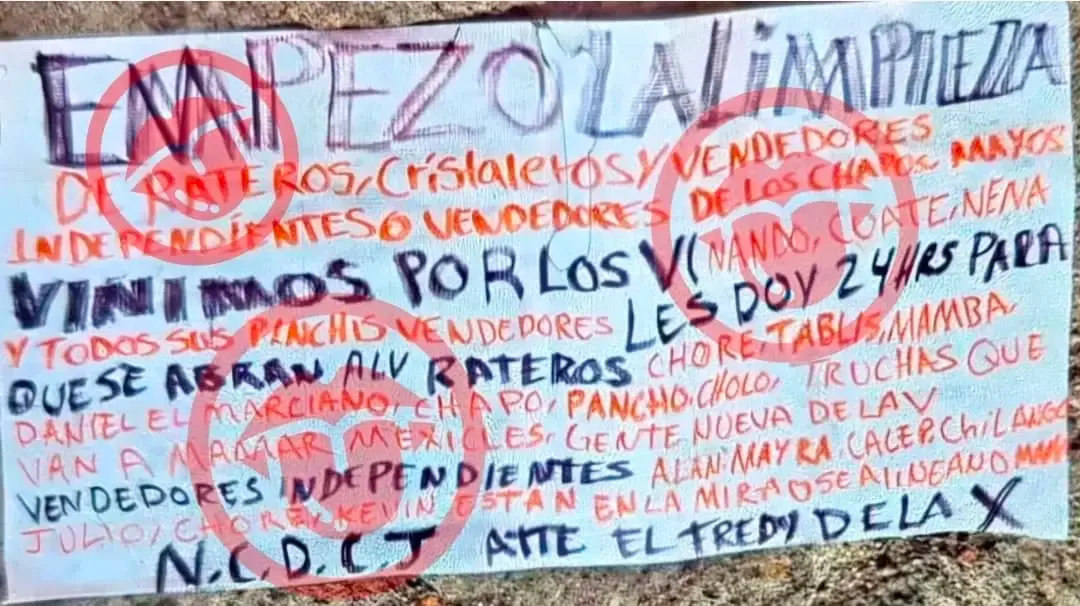 EMPEZO LA LIMPIEZA
DE RATEROS, Cristaleros Y VENDEDORES
INDEPENDÍENTES O VENDEDORES DE LOS CHAPOS MAYOS
VINIMOS POR LOS VI NANDO, COATE, NENA
Y TODOS SUS PINCHIS VENDEDORES LES DOY 24 HRS PARA
QUE SE ABRAN ALV RATEROS CHORE, TABLIS, MAMBA,
DANIEL EL MARCIANO, CHAPO, PANCHO, CHOLO, TRUCHAS QUE
VAN A MAMAR MEXICLES, GENTE NUEVA DE LA V
VENDEDORES INDEPENDIENTES ALAN MAYRA, CALEP, ChiLANGO
JULIO, CHORE, KEVIN ESTAN EN LA MIRA O SE ALINEAN O
N.C.D.C.J ATTE EL FREDY DE LA X